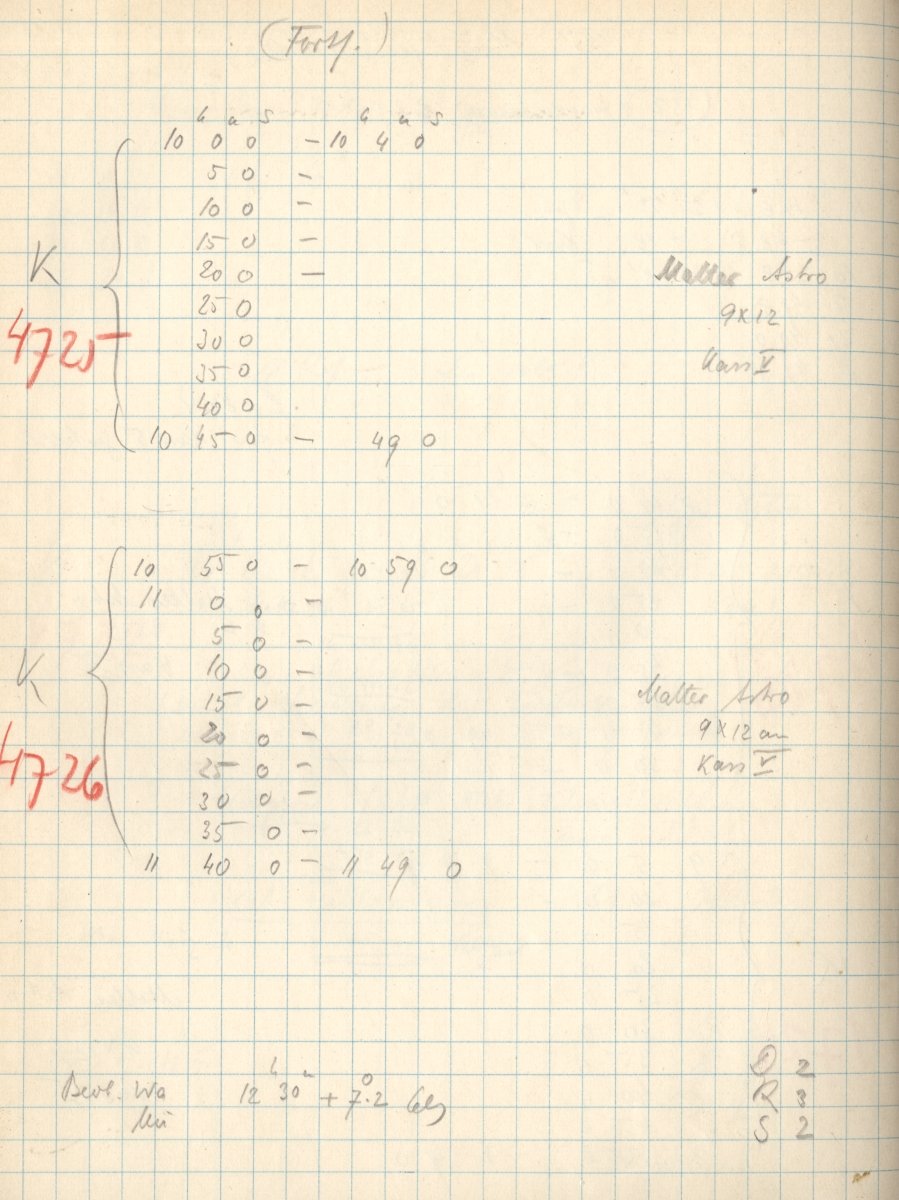 (Forts.)
h m s h m s
10 0 0 — 10 4 0
5 0 —
10 0 —
15 0 —
K 20 0 — Matter Astro
25 0 9x12
4725 30 0
35 0 Kass V
40 0
10 45 0 — 49 0
10 55 0 — 10 59 0
11 0 0 —
5 0 —
K 10 0 —
15 0 — Matter Astro
20 0 — 9X12 cm
4726 25 0 — Kass V
30 0 —
35 0 —
11 40 0 — 11 49 0
D 2
Beob. Wa 12h 30m + 7°.2 Cels R 3
S 2